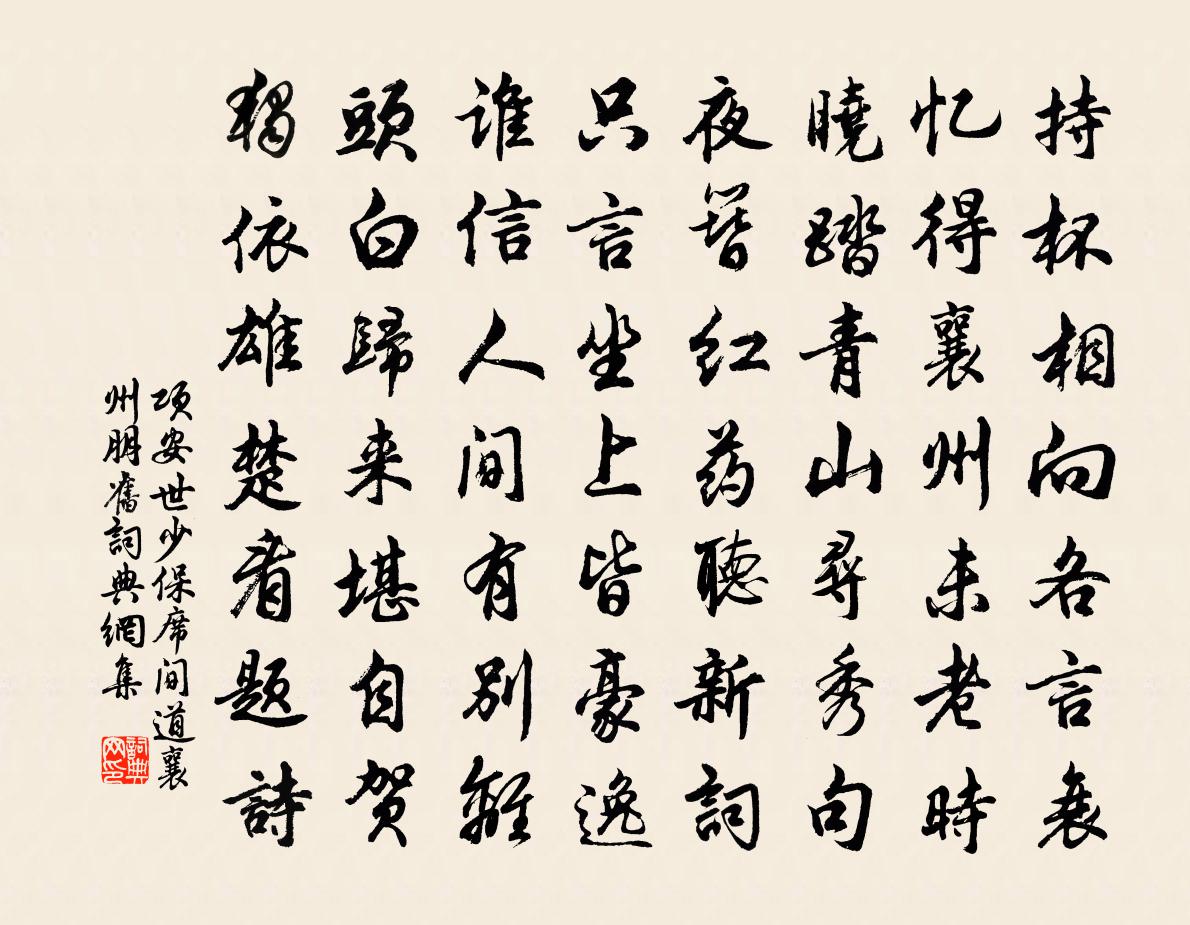 持杯相向各言衰
忆得襄州未老時
曉踏青山尋秀句
夜簪红药聽新詞
只言坐上皆豪逸
谁信人间有别離
頭白歸来堪自贺
獨依雄楚看题詩
项安世少保席间道襄
州朋舊詞典網集
詞典网印